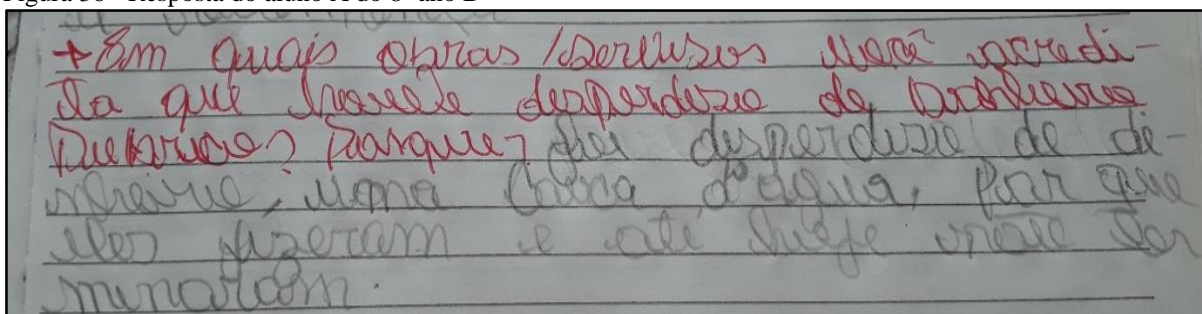 Figura 50 - Resposta do aluno A do 6º ano B
+ Em quais obras / serviusos você acredi-
ta que houve desperdizio de dinheiro
Publico? Porque? foi desperdizio de di-
nheiro, uma Caixa d'água, por que
eles fizeram e até hoje não ter
minaram.